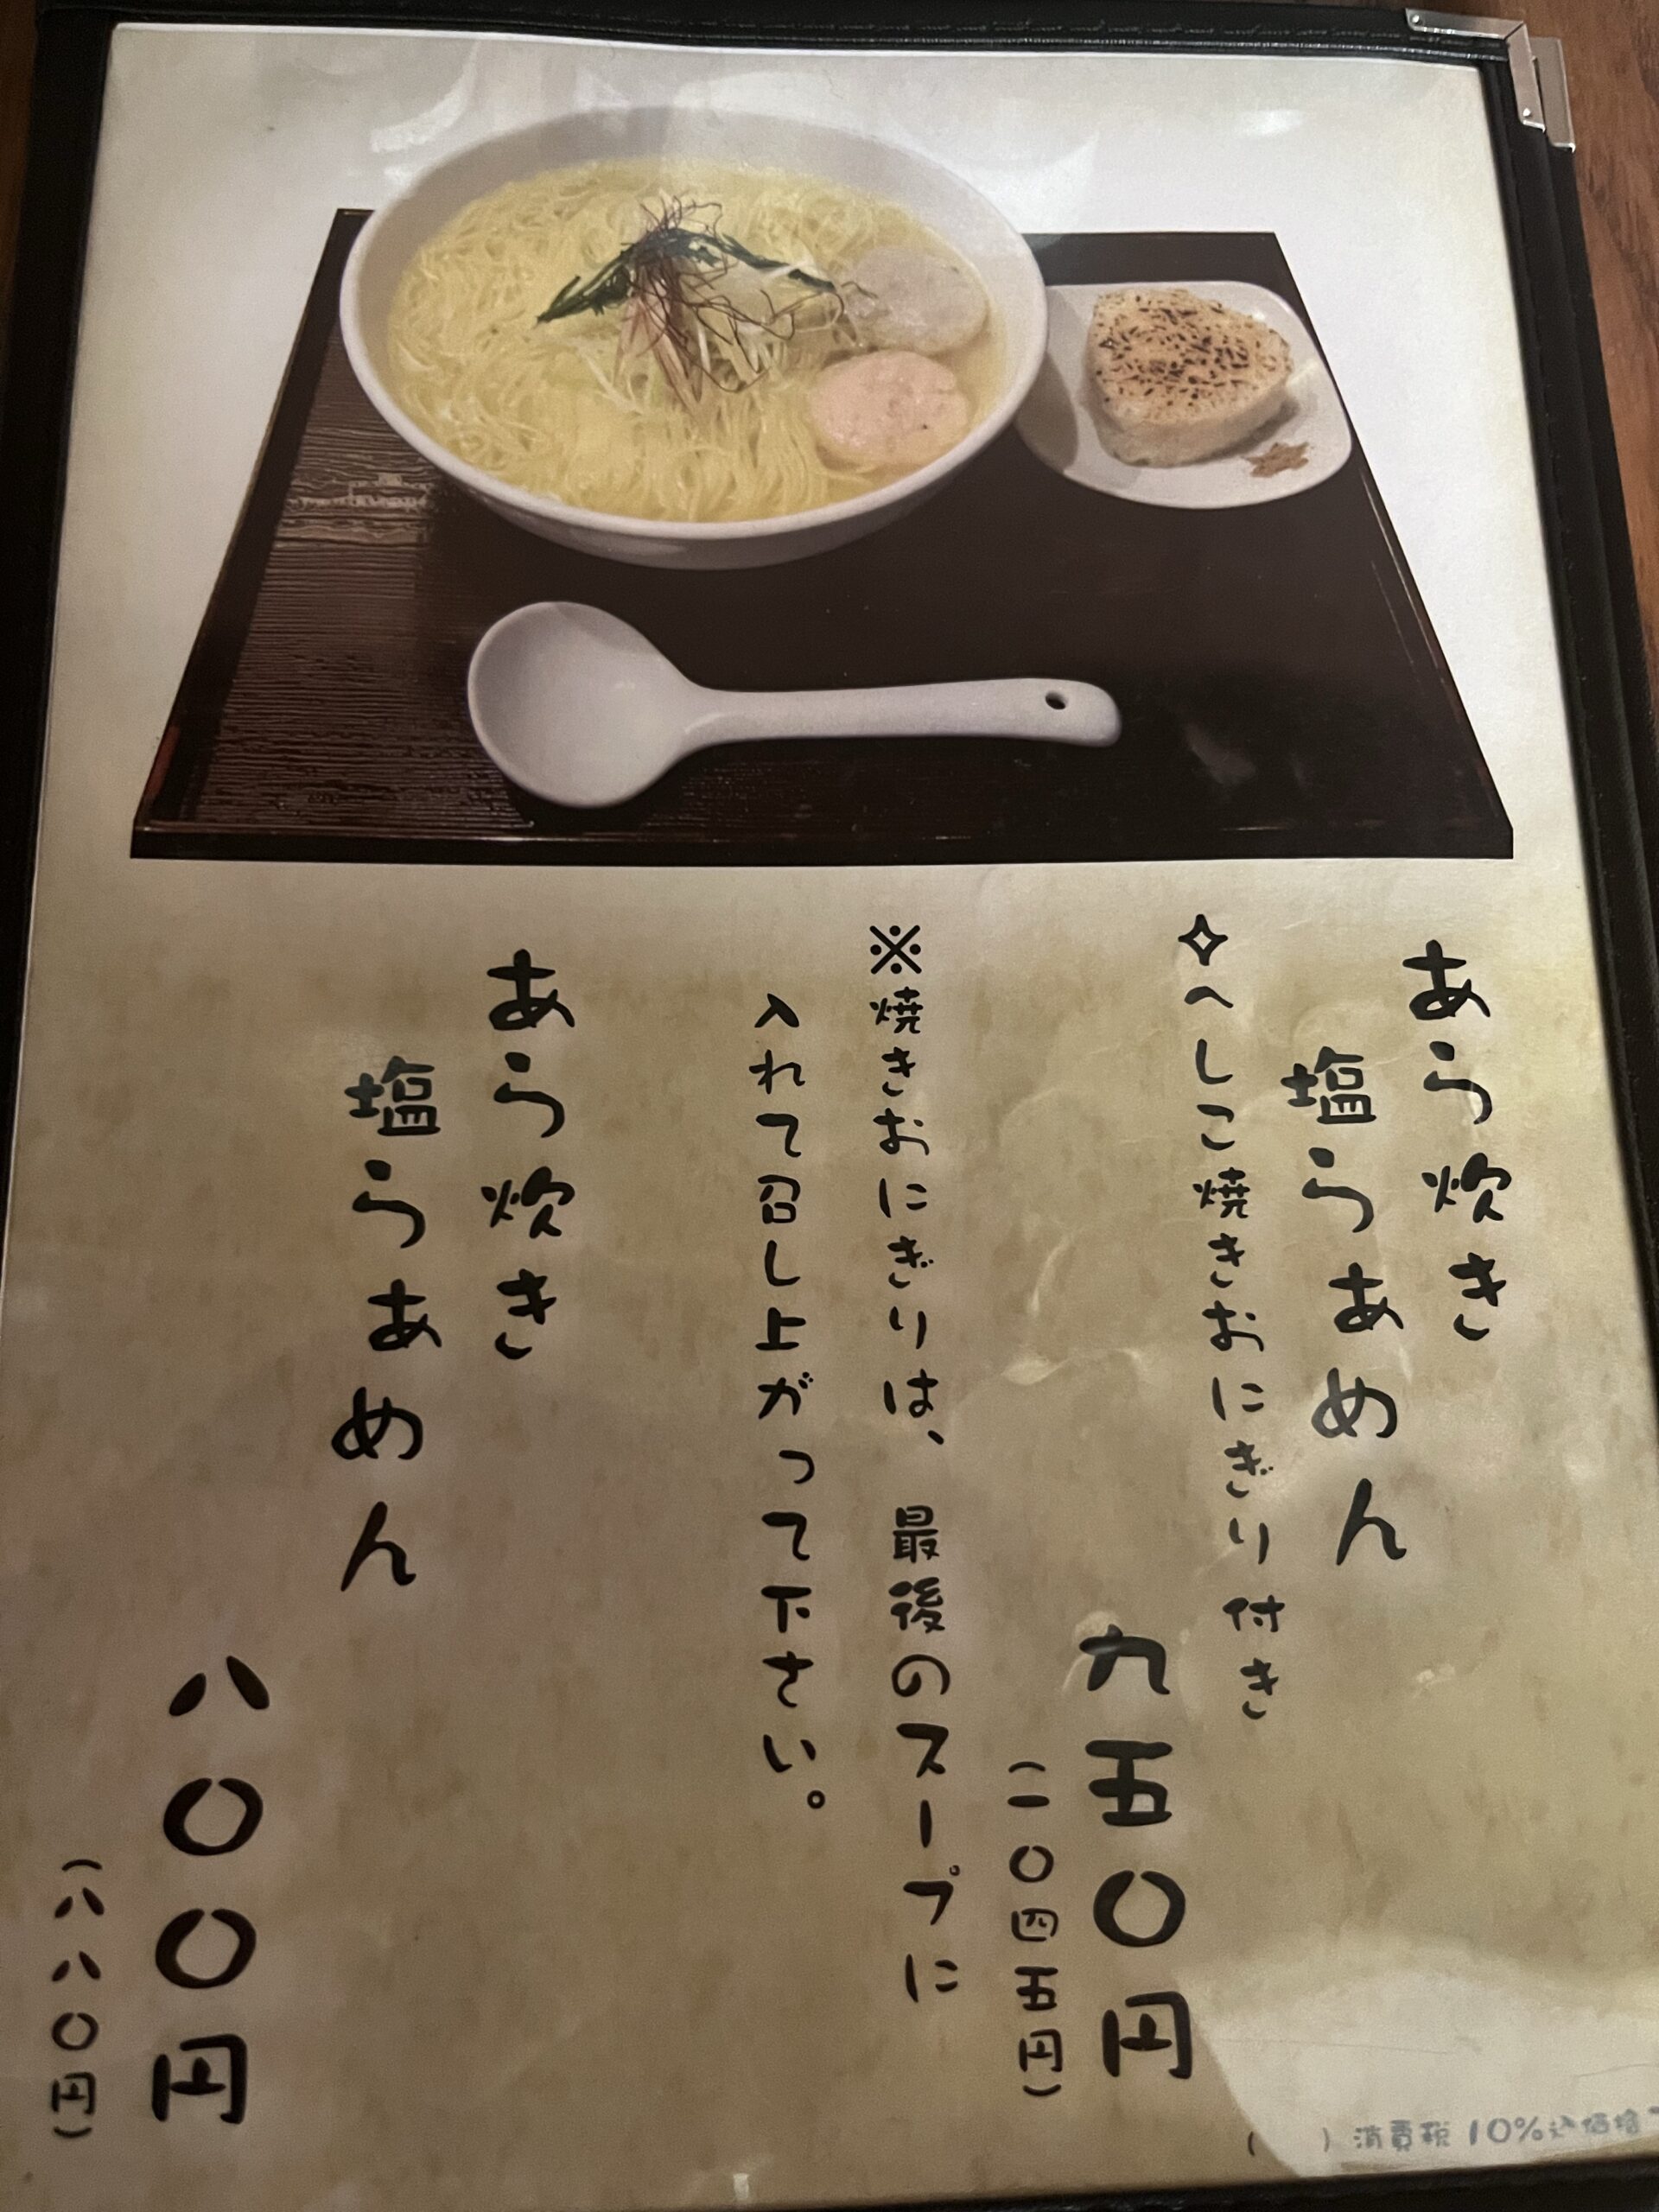 あら炊き
塩らぁめん
✧へしこ焼きおにぎり付き
九五〇円
(一〇四五円)
※焼きおにぎりは、最後のスープに
入れて召し上がって下さい。
あら炊き
塩らぁめん
八〇〇円
(八八〇円)
(　)消費税10%込価格